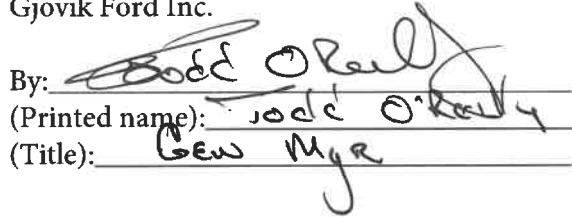 Gjovik Ford Inc.
By: Todd O'Reilly
(Printed name): Todd O'Reilly
(Title): Gen Mgr